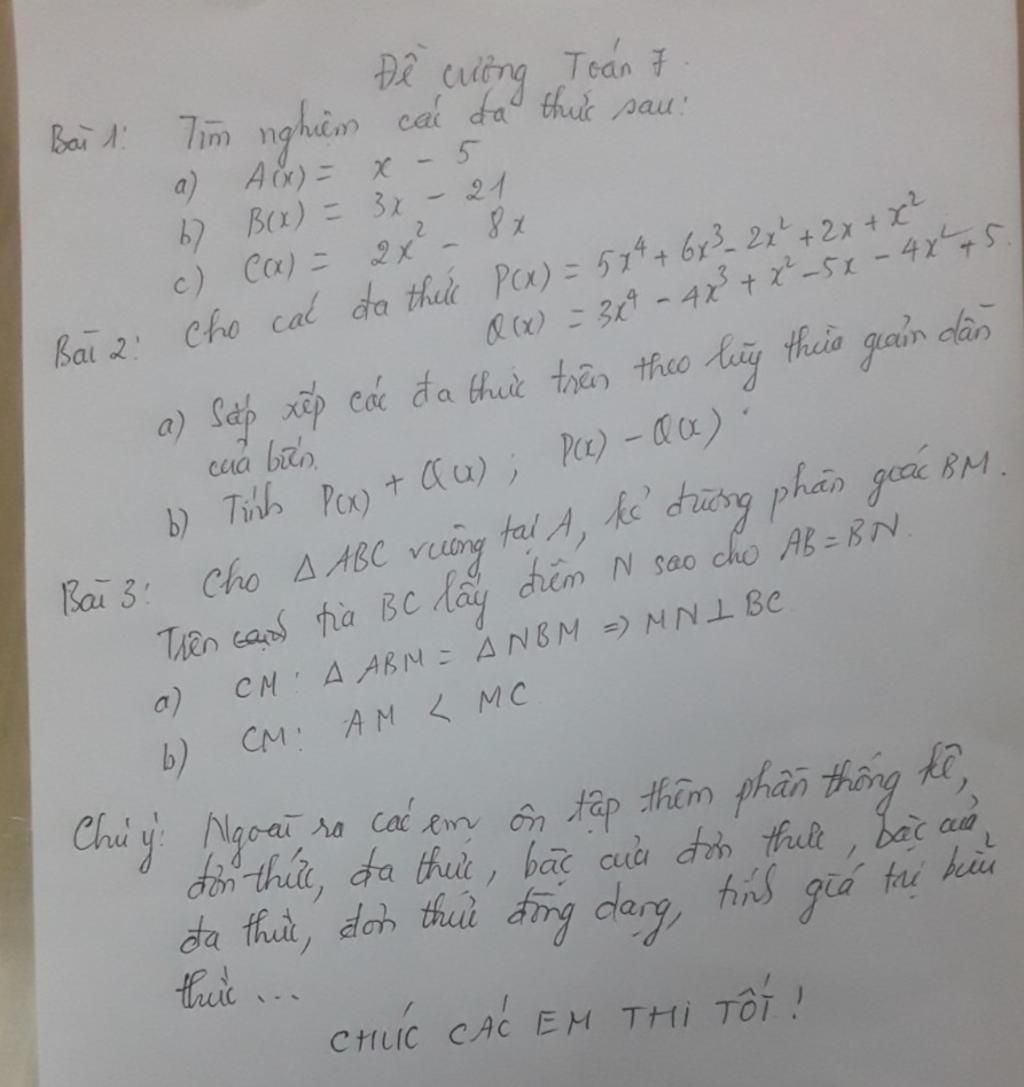 Đề cương Toán 7.
Bài 1: Tìm nghiệm các đa thức sau:
a) A(x) = x - 5
b) B(x) = 3x - 21
c) C(x) = 2x² - 8x
Bài 2: Cho các đa thức P(x) = 5x⁴ + 6x³ - 2x² + 2x + x²
Q(x) = 3x⁴ - 4x³ + x² - 5x - 4x² + 5.
a) Sắp xếp các đa thức trên theo lũy thừa giảm dần
của biến.
b) Tính P(x) + Q(x) ; P(x) - Q(x).
Bài 3: Cho Δ ABC vuông tại A, kẻ đường phân giác BM.
Trên tia BC lấy điểm N sao cho AB = BN.
a) CM: Δ ABM = Δ NBM => MN ⊥ BC
b) CM: AM < MC
Chú ý: Ngoài ra các em ôn tập thêm phần thống kê,
đơn thức, đa thức, bậc của đơn thức, bậc của
đa thức, đơn thức đồng dạng, tính giá trị biểu
thức ...
CHÚC CÁC EM THI TỐT!